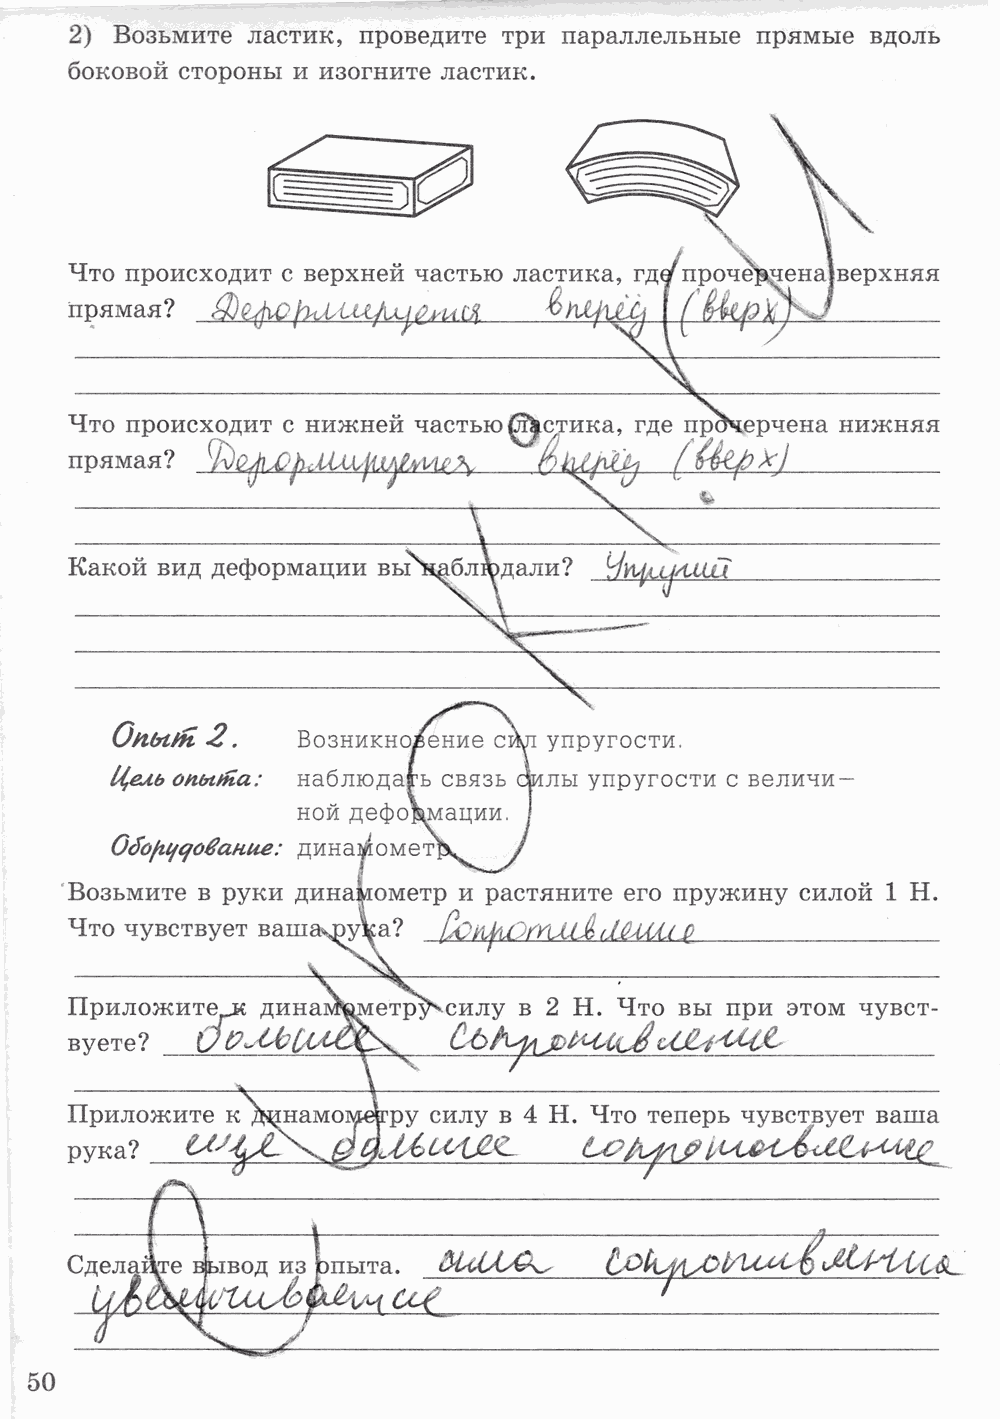 2) Возьмите ластик, проведите три параллельные прямые вдоль
боковой стороны и изогните ластик.
Что происходит с верхней частью ластика, где прочерчена верхняя
прямая? Деформируется вперёд (вверх)
Что происходит с нижней частью ластика, где прочерчена нижняя
прямая? Деформируется вперёд (вверх)
Какой вид деформации вы наблюдали? Упругий
Опыт 2. Возникновение сил упругости.
Цель опыта: наблюдать связь силы упругости с величи-
ной деформации.
Оборудование: динамометр.
Возьмите в руки динамометр и растяните его пружину силой 1 Н.
Что чувствует ваша рука? Сопротивление
Приложите к динамометру силу в 2 Н. Что вы при этом чувст-
вуете? большее сопротивление
Приложите к динамометру силу в 4 Н. Что теперь чувствует ваша
рука? еще большее сопротивление
Сделайте вывод из опыта. сила сопротивления
увеличивается
50